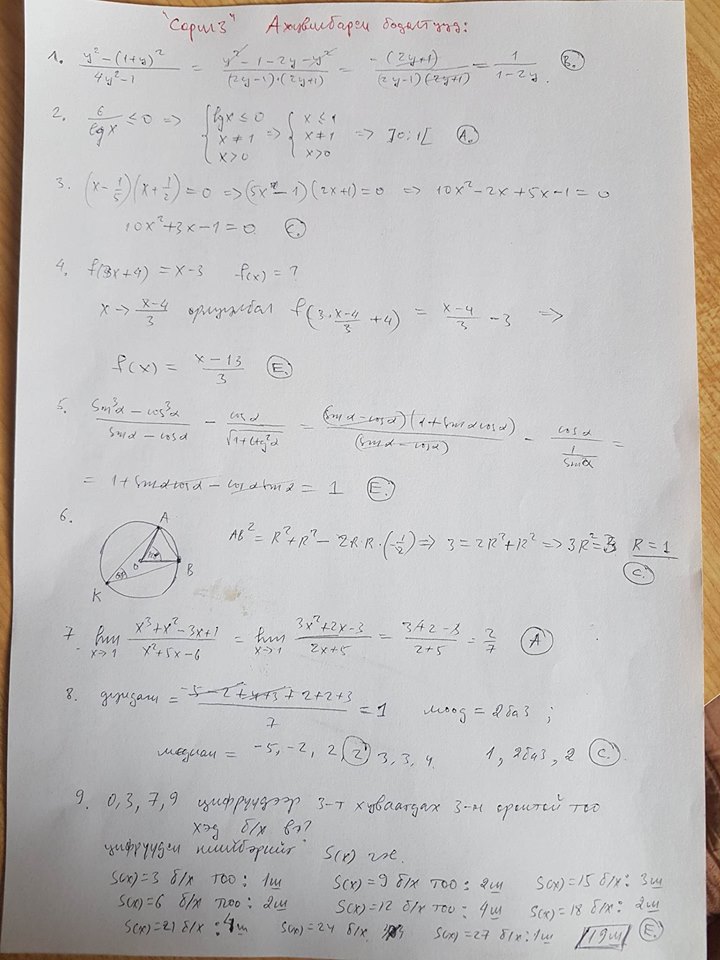 "Сорил 3" Ахувилбарын бодолтууд:
1. (y² - (1+y)²)/(4y² - 1) = (y² - 1 - 2y - y²)/((2y-1)·(2y+1)) = -(2y+1)/((2y-1)(2y+1)) = 1/(1-2y). B.
2. 6/lgx ≤ 0 => { lgx ≤ 0, x ≠ 1, x > 0 => { x ≤ 1, x ≠ 1, x > 0 => ]0;1[ A.
3. (x - 1/5)(x + 1/2) = 0 => (5x - 1)(2x+1) = 0 => 10x² - 2x + 5x - 1 = 0
10x² + 3x - 1 = 0 C.
4. f(3x+4) = x-3 f(x) = ?
x → (x-4)/3 орлуулбал f(3·(x-4)/3 + 4) = (x-4)/3 - 3 =>
f(x) = (x-13)/3 E.
5. (sin³α - cos³α)/(sinα - cosα) - cosα/√(1+ctg²α) = (sinα - cosα)(1+sinα cosα)/(sinα - cosα) - cosα/(1/sinα) =
= 1 + sinα cosα - cosα sinα = 1 E.
6. A O B K AB² = R² + R² - 2R·R·(-1/2) => 3 = 2R² + R² => 3R² = 3 R = 1
C.
7. lim x→1 (x³+x²-3x+1)/(x²+5x-6) = lim x→1 (3x²+2x-3)/(2x+5) = (3+2-3)/(2+5) = 2/7 A
8. дундаж = (-5-2+4+3+2+2+3)/7 = 1 моод = 2 ба 3 ;
медиан = -5, -2, 2, 2, 3, 3, 4. 1, 2 ба 3, 2 C.
9. 0, 3, 7, 9 цифрүүдээр 3-т хуваагдах 3-н оронтой тоо
хэд б/х вэ?
цифрүүдийн нийлбэрийг S(x) гэж.
S(x)=3 б/х тоо : 1ш S(x)=9 б/х тоо : 2ш S(x)=15 б/х : 3ш
S(x)=6 б/х тоо : 2ш S(x)=12 б/х тоо : 4ш S(x)=18 б/х : 2ш
S(x)=21 б/х : 4ш S(x)=24 б/х S(x)=27 б/х : 1ш 19ш E.